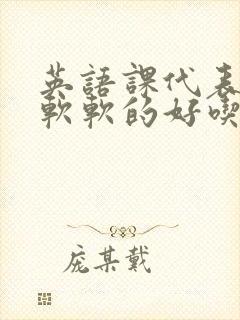 英語課代表
軟軟的好喫
庞某戴